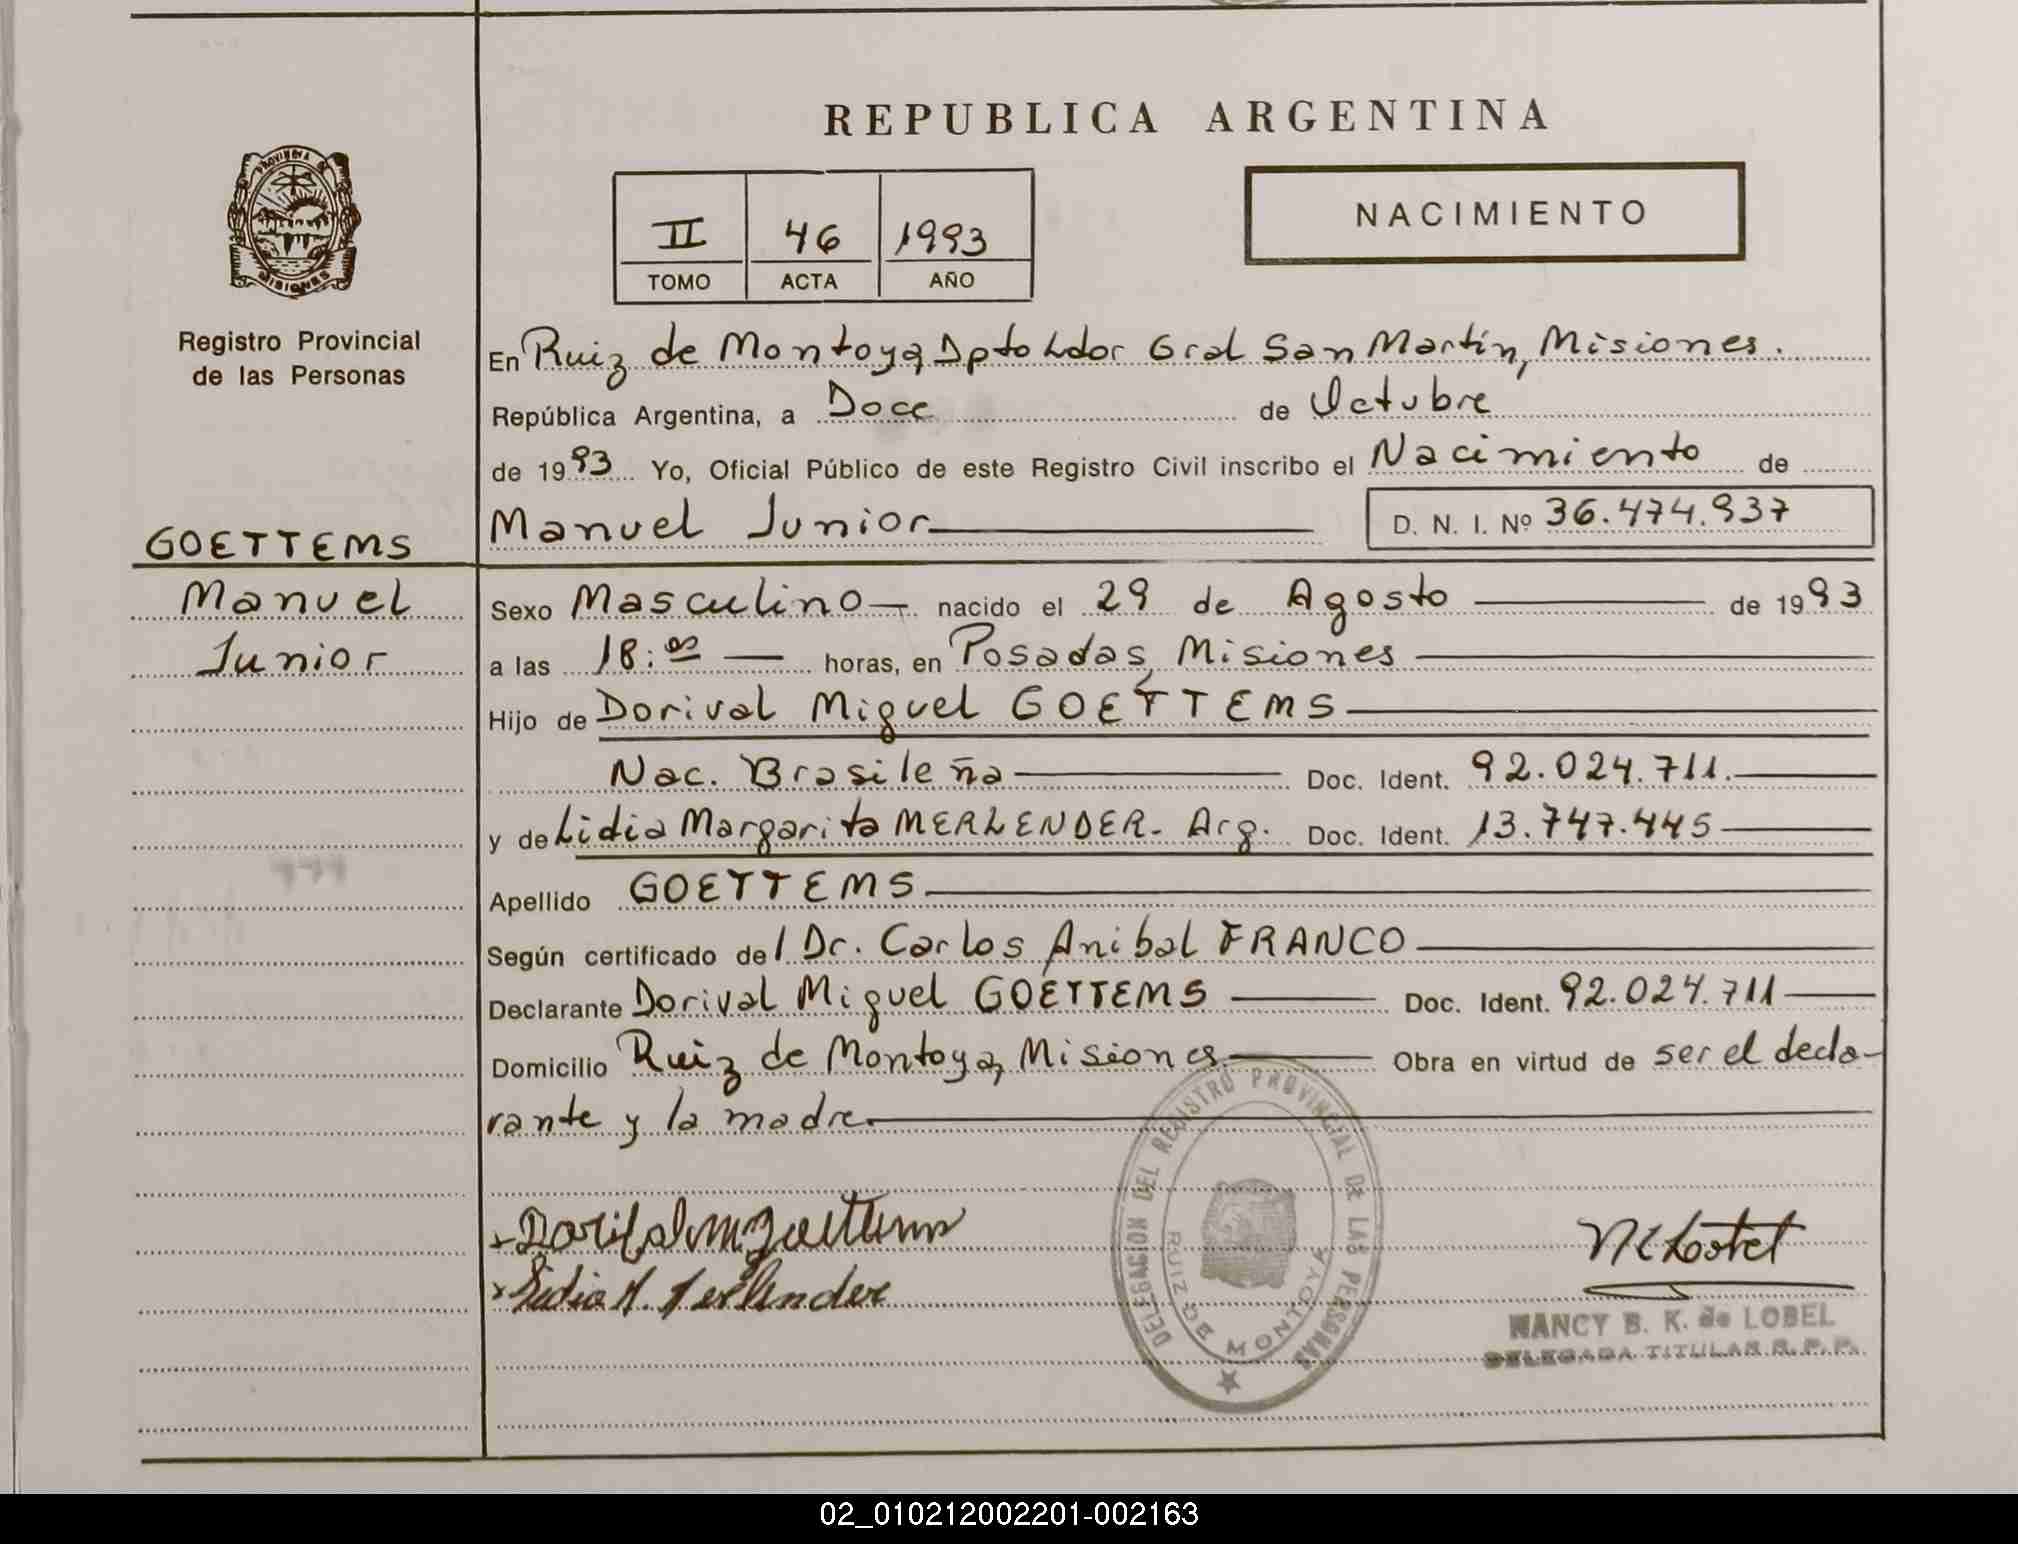 REPUBLICA ARGENTINA
PROVINCIA DE
MISIONES
Registro Provincial
de las Personas
II 46 1993
TOMO ACTA AÑO
NACIMIENTO
En Ruiz de Montoya, Dpto Ldor Gral San Martín, Misiones.
República Argentina, a Doce de Octubre
de 1993 Yo, Oficial Público de este Registro Civil inscribo el Nacimiento de
Manuel Junior D. N. I. Nº 36.474.937
GOETTEMS
Manuel
Junior
Sexo Masculino nacido el 29 de Agosto de 1993
a las 18:00 horas, en Posadas, Misiones
Hijo de Dorival Miguel GOETTEMS
Nac. Brasileña Doc. Ident. 92.024.711.
y de Lidia Margarita MERLENDER. Arg. Doc. Ident. 13.747.445
Apellido GOETTEMS
Según certificado del Dr. Carlos Anibal FRANCO
Declarante Dorival Miguel GOETTEMS Doc. Ident. 92.024.711
Domicilio Ruiz de Montoya, Misiones Obra en virtud de ser el decla-
rante y la madre
DELEGACION DEL REGISTRO PROVINCIAL DE LAS PERSONAS
RUIZ DE MONTOYA
NANCY B. K. de LOBEL
DELEGADA TITULAR R. P. P.
02_010212002201-002163